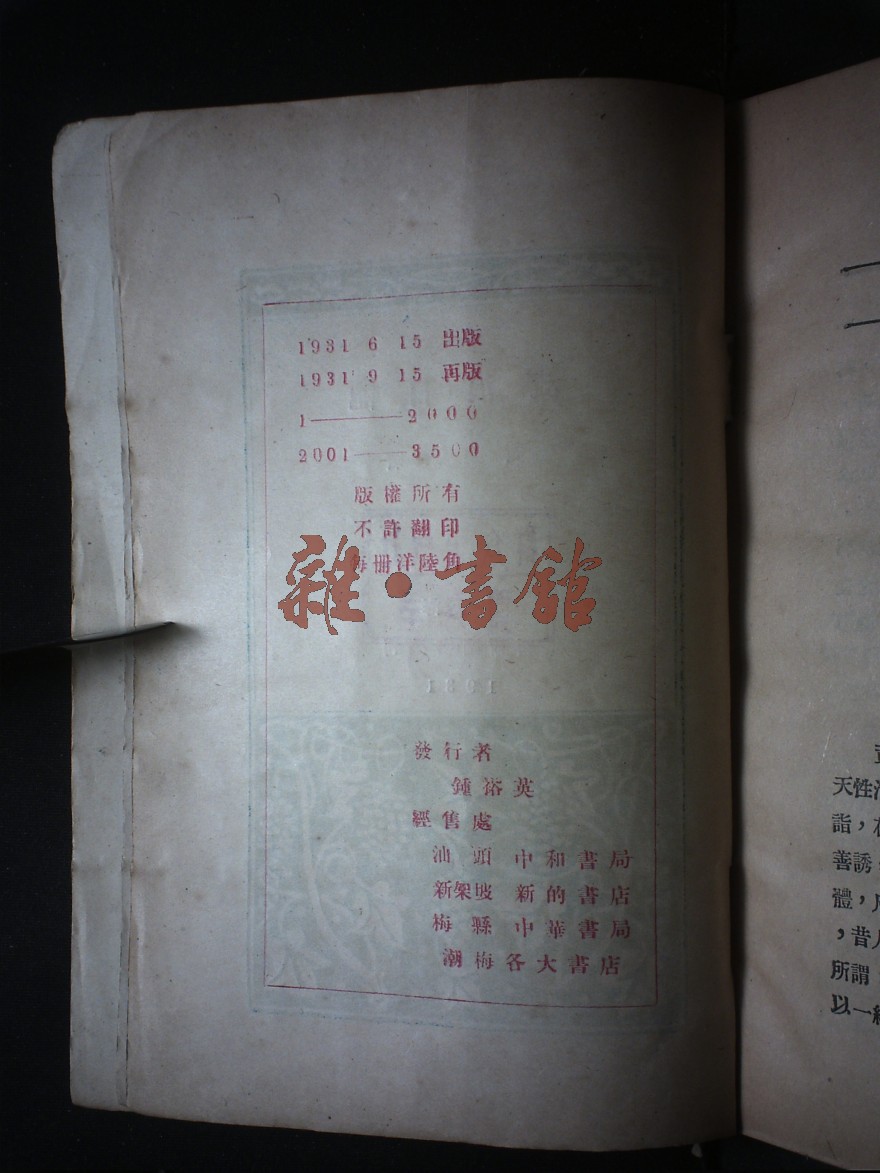 1931 6 15 出版
1931 9 15 再版
1——2000
2001——3500
版權所有
不許翻印
每冊洋陸角
雜·書館
1931
發行者
鍾裕英
經售處
汕頭 中和書局
新架坡 新的書店
梅縣 中華書局
潮梅各大書店
天性
詣，
善誘
體，
，昔
所謂
以一